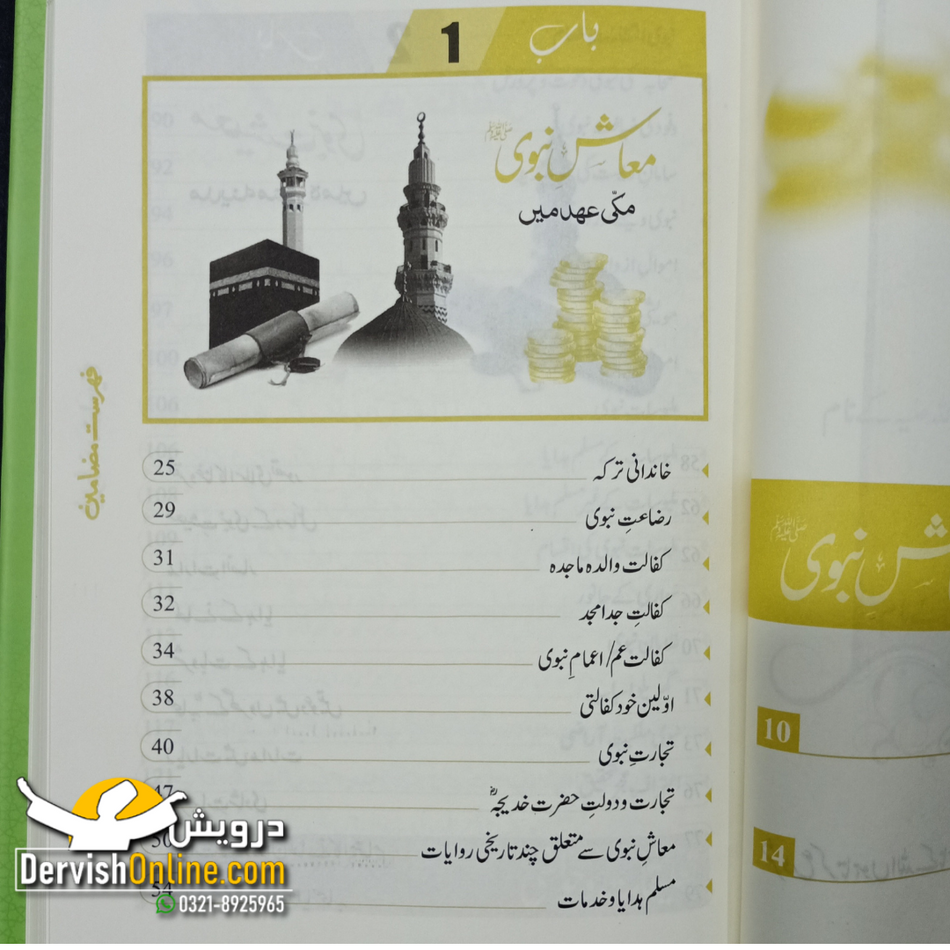 باب 1
معاشِ نبوی ﷺ
مکّی عہد میں
فہرست مضامین
خاندانی ترکہ 25
رضاعتِ نبوی 29
کفالت والدہ ماجدہ 31
کفالتِ جد امجد 32
کفالت عم/اعمامِ نبوی 34
اوّلین خود کفالتی 38
تجارتِ نبوی 40
تجارت و دولتِ حضرت خدیجہؓ 47
معاشِ نبوی سے متعلق چند تاریخی روایات 50
مسلم ہدایا و خدمات 54
شِ نبوی ﷺ
10
14
درویش
DervishOnline.com
0321-8925965